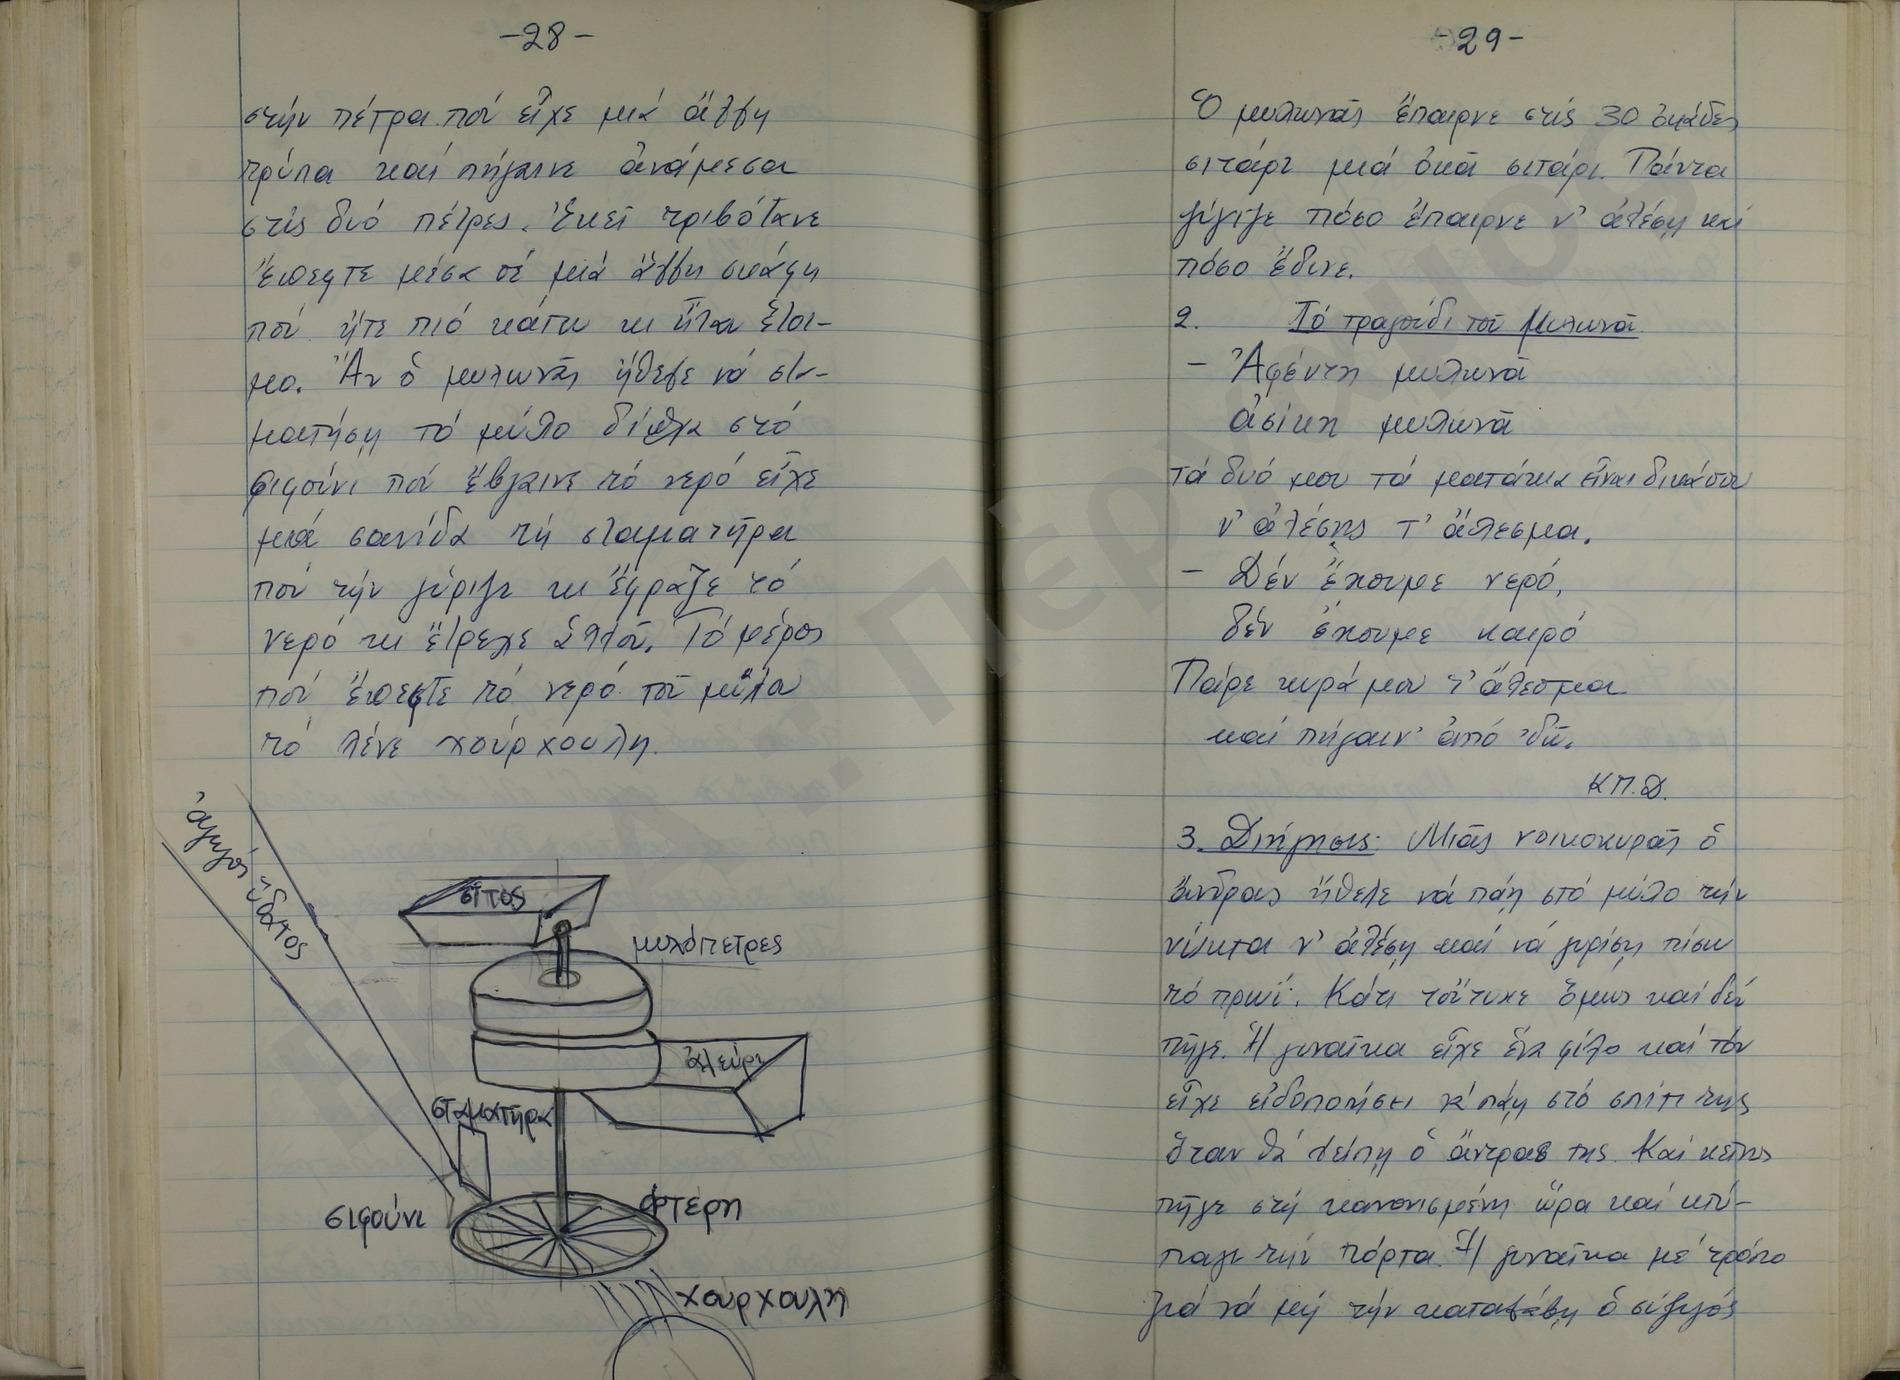 -28-
στήν πέτρα πού εἶχε μιά ἄλλη
τρύπα καί πήγαινε ἀνάμεσα
στίς δυό πέτρες. Ἐκεῖ τριβότανε
ἔπεφτε μέσα σέ μιά ἄλλη σκάφη
πού ἦτο πιό κάτω κι ἦταν ἕτοι-
μο. Ἄν ὁ μυλωνᾶς ἤθελε νά στα-
ματήση τό μύλο δίπλα στό
σιφούνι πού ἔβγαινε τό νερό εἶχε
μιά σανίδα τή σταματῆρα
πού τήν γύριζε κι ἔφραζε τό
νερό κι ἔτρεχε ἀλλοῦ. Τό μέρος
πού ἔπεφτε τό νερό τοῦ μύλου
τό λένε χούρχουλη.
ἀγωγός ὕδατος
σῖτος
μυλόπετρες
ἀλεύρι
σταματῆρα
σιφούνι
φτερη
χούρχουλη
-29-
Ὁ μυλωνᾶς ἔπαιρνε στίς 30 ὀκάδες
σιτάρι μιά ὀκᾶ σιτάρι. Πάντα
ζύγιζε πόσο ἔπαιρνε ν' ἀλέση καί
πόσο ἔδινε.
2. Τό τραγούδι τοῦ μυλωνᾶ
- Ἀφέντη μυλωνᾶ
ἀσίκη μυλωνᾶ
τά δυό μου τά ματάκια εἶναι δικά σου
ν' ἀλέσης τ' ἄλεσμα.
- Δέν ἔχουμε νερό,
δέν ἔχουμε καιρό
Πάρε κυρά μου τ' ἄλεσμα
καί πήγαιν' ἀπό 'δῶ.
Κ.Π.Δ.
3. Διήγησις: Μιᾶς νοικοκυρᾶς ὁ
ἄνδρας ἤθελε νά πάη στό μύλο τήν
νύκτα ν' ἀλέση καί νά γυρίση πίσω
τό πρωΐ. Κάτι τοὔτυχε ὅμως καί δέν
πῆγε. Ἡ γυναῖκα εἶχε ἕνα φίλο καί τόν
εἶχε εἰδοποιήσει νά πάη στό σπίτι της
ὅταν θά λείπη ὁ ἄντρας της. Καί κεῖνος
πῆγε στή κανονισμένη ὥρα καί κτύ-
παγε τήν πόρτα. Ἡ γυναῖκα μέ τρόπο
γιά νά μή τήν καταλάβη ὁ σύζυγός